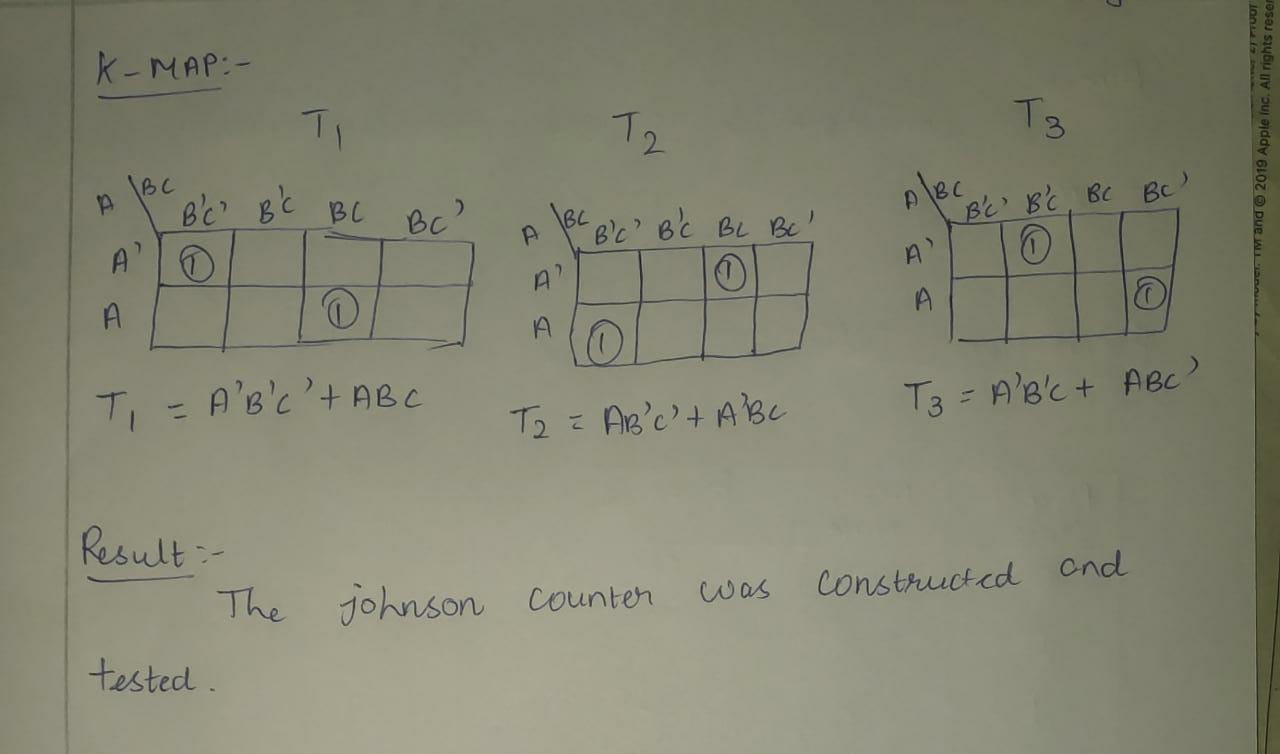 K-MAP:-
T1 T2 T3
A \ BC B'C' B'C BC BC'
A' 1
A 1
T1 = A'B'C' + ABC
A \ BC B'C' B'C BC BC'
A' 1
A 1
T2 = AB'C' + A'BC
A \ BC B'C' B'C BC BC'
A' 1
A 1
T3 = A'B'C + ABC'
Result:-
The johnson counter was constructed and
tested.
TM and © 2019 Apple Inc. All rights rese